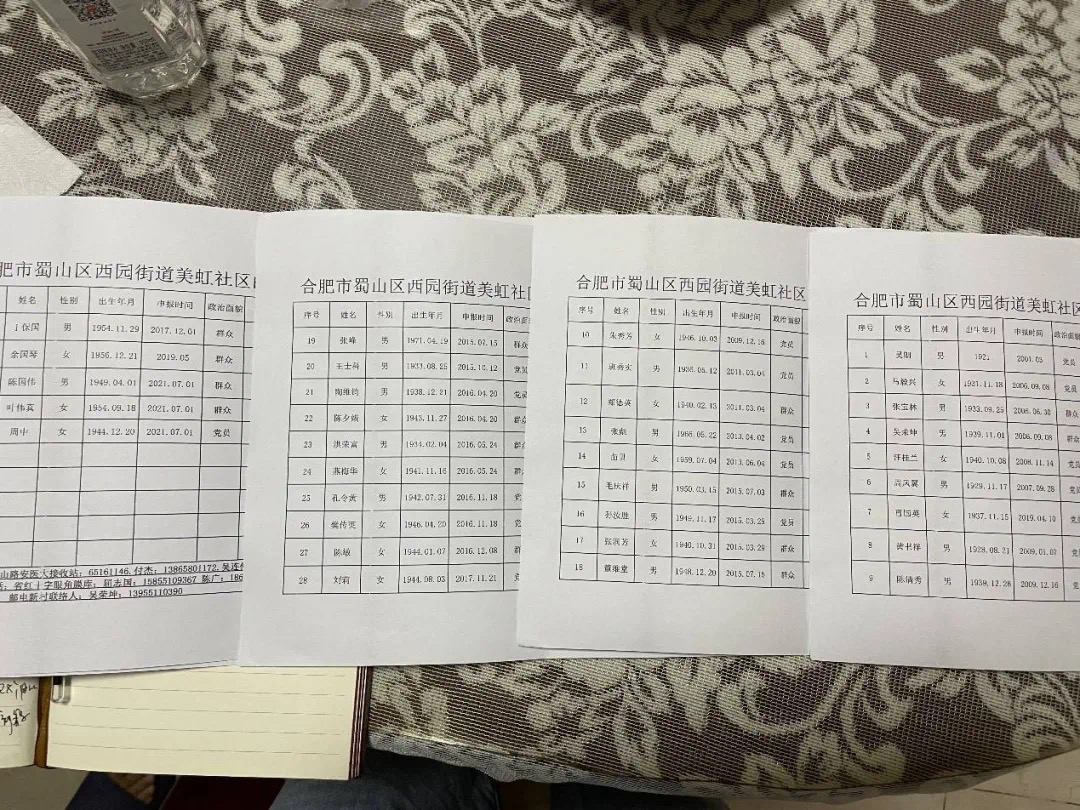 肥市蜀山区西园街道美虹社区
姓名 性别 出生年月 申报时间 政治面貌
保国 男 1954.11.29 2017.12.01 群众
余国琴 女 1956.12.21 2019.05 群众
陈国伟 男 1949.04.01 2021.07.01 群众
叶伟真 女 1954.09.18 2021.07.01 群众
周中 女 1944.12.20 2021.07.01 党员
山路安医大接收站：65161146.付杰：13865801172.吴连
省红十字眼角膜库：屈志国：15855109367 陈广：186
邮电新村联络人：吴荣坤：13955110390
合肥市蜀山区西园街道美虹社
序号 姓名 性别 出生年月 申报时间 政治面
19 张峰 男 1971.04.19 2015.07.15 群众
20 王士尚 男 1933.08.25 2015.10.12 党员
21 陶维钧 男 1938.12.21 2016.04.20 党员
22 陈夕娥 女 1943.11.27 2016.04.20 群众
23 洪荣富 男 1934.02.04 2016.05.24 群
24 燕梅华 女 1941.11.16 2016.05.24 群
25 孔令黄 男 1942.07.31 2016.11.18 党
26 樊传英 女 1946.04.20 2016.11.18 党
27 陈敏 女 1944.01.07 2016.12.08 群
28 刘莉 女 1944.08.03 2017.11.21 党
合肥市蜀山区西园街道美虹社区
序号 姓名 性别 出生年月 申报时间 政治面貌
10 朱秀芳 女 1946.10.03 2009.12.16 党员
11 男 1936.05.12 2011.03.04 党员
12 郑德英 女 1940.02.13 2011.03.04 群众
13 张 男 1966.05.22 2013.04.02 党员
14 女 1959.07.04 2013.06.04 党员
15 毛庆祥 男 1950.03.15 2015.07.03 群众
16 孙汝胜 男 1949.11.17 2015.03.25 党员
17 张润芳 女 1940.10.31 2015.03.29 群众
18 董维堂 男 1948.12.20 2015.07.15 群众
合肥市蜀山区西园街道美虹社区
序号 姓名 性别 出生年月 申报时间 政治面貌
1 吴 男 1921. 2001.05 党员
2 马毅兴 女 1931.11.18 2006.09.08 党员
3 张宝林 男 1933.09.25 2006.06.30 群众
4 吴荣坤 男 1939.11.01 2006.09.08 群众
5 汪桂兰 女 1940.10.08 2006.11.14 党员
6 高凤翼 男 1929.11.17 2007.09.28 党员
7 国英 女 1937.11.15 2019.04.10 党员
8 黄书祥 男 1928.08.21 2009.01.07 党员
9 陈清秀 男 1939.12.28 2009.12.16 党